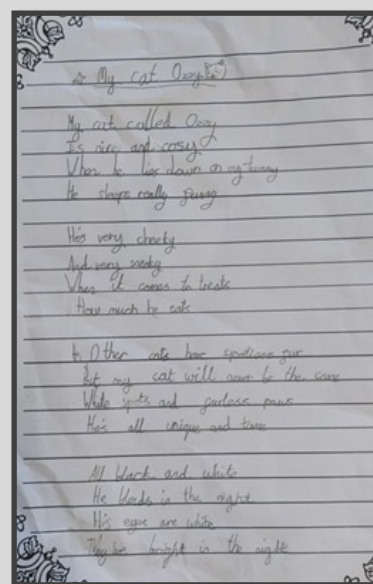 ☆ My cat Ozzy
My cat called Ozzy
Is nice and cosy
When he lies down on my tummy
He sleeps really funny
He's very cheeky
And very sneaky
When it comes to treats
How much he eats
Other cats have spotless fur
But my cat will never be the same
White spots and furless paws
He's all unique and tame
All black and white
He blends in the night
His eyes are white
They're bright in the night